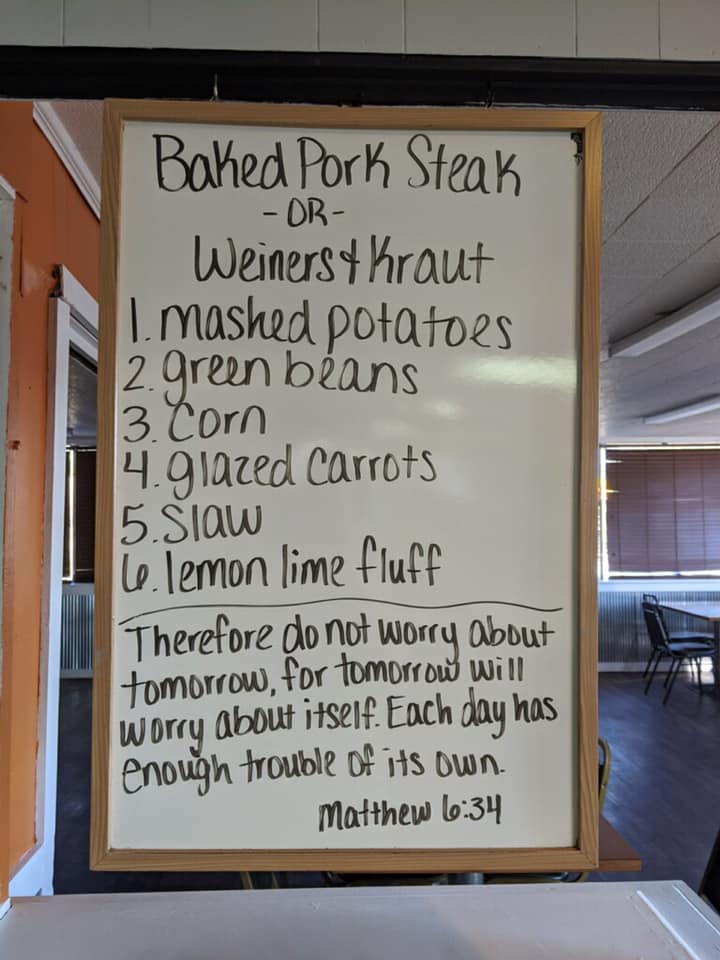 Baked Pork Steak
- OR -
Weiners & Kraut
1. mashed potatoes
2. green beans
3. Corn
4. glazed carrots
5. Slaw
6. lemon lime fluff
Therefore do not worry about
tomorrow, for tomorrow will
worry about itself. Each day has
enough trouble of its own.
Matthew 6:34